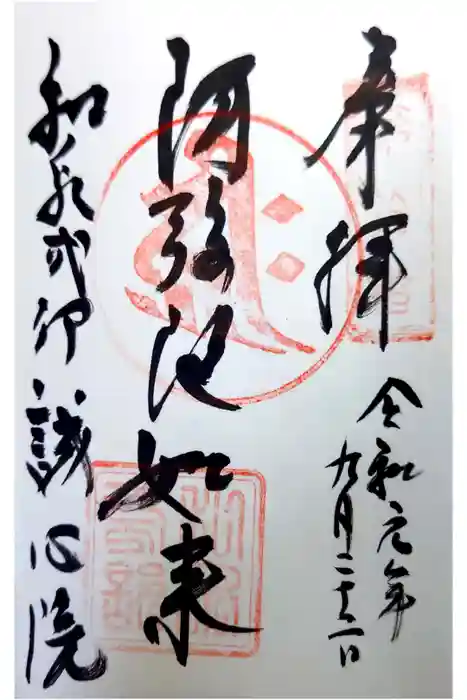 奉拝
令和元年
九月二十一日
阿弥陀如来
和泉式部 誠心院